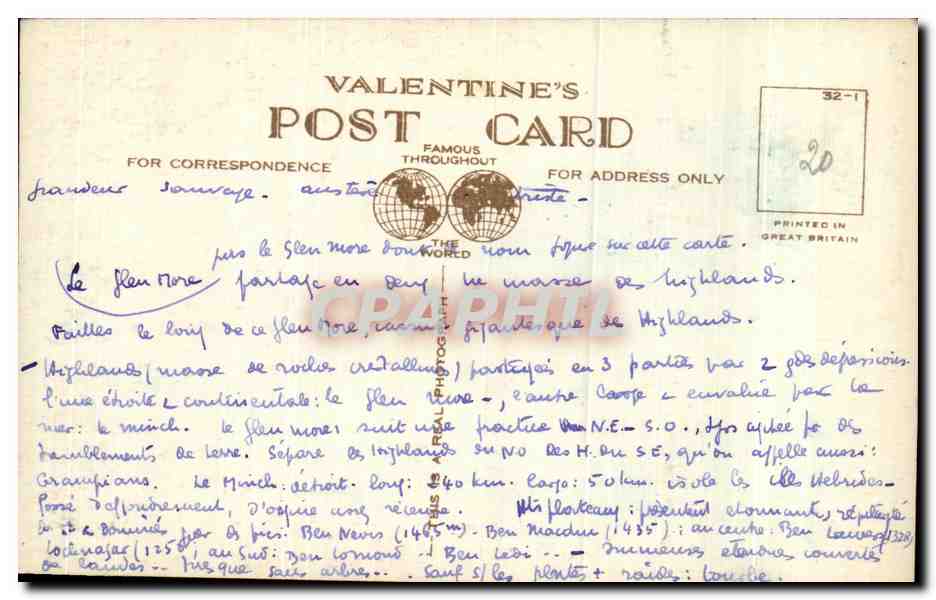 VALENTINE'S
POST CARD
32-1
20
FAMOUS
THROUGHOUT
FOR CORRESPONDENCE
FOR ADDRESS ONLY
THE
WORLD
PRINTED IN
GREAT BRITAIN
THIS IS A REAL PHOTOGRAPH
CPARHTL
grandeur sauvage. austère triste -
le Glen More dont le nom figure sur cette carte.
Le Glen More partage en deux la masse des Highlands.
Failles le long de ce Glen More, cassure gigantesque de Highlands.
- Highlands (masse de roches cristallines) partagées en 3 parties par 2 gdes dépressions
l'une étroite & continentale : le Glen More -, l'autre large & envahie par la
mer : le Minch. Le Glen More suit une fracture N.E - S.O.,
tremblements de terre. Sépare les Highlands du N.O des H. du S.E, qu'on appelle aussi :
Grampians. Le Minch : détroit. long : 40 km. large : 50 km. isole les Hébrides -
Fossé d'effondrement, d'origine assez récente. plateaux : présentent étonnante
dominés par des pics : Ben Nevis (1465m) - Ben Macdui (1435) : au centre : Ben Lawers (1328)
Lochnagar au Sud : Ben Lomond -- Ben Ledi -- - Immenses étendues couvertes
de landes -- Presque sans arbres -- Sauf s/ les pentes + raides : tourbe.